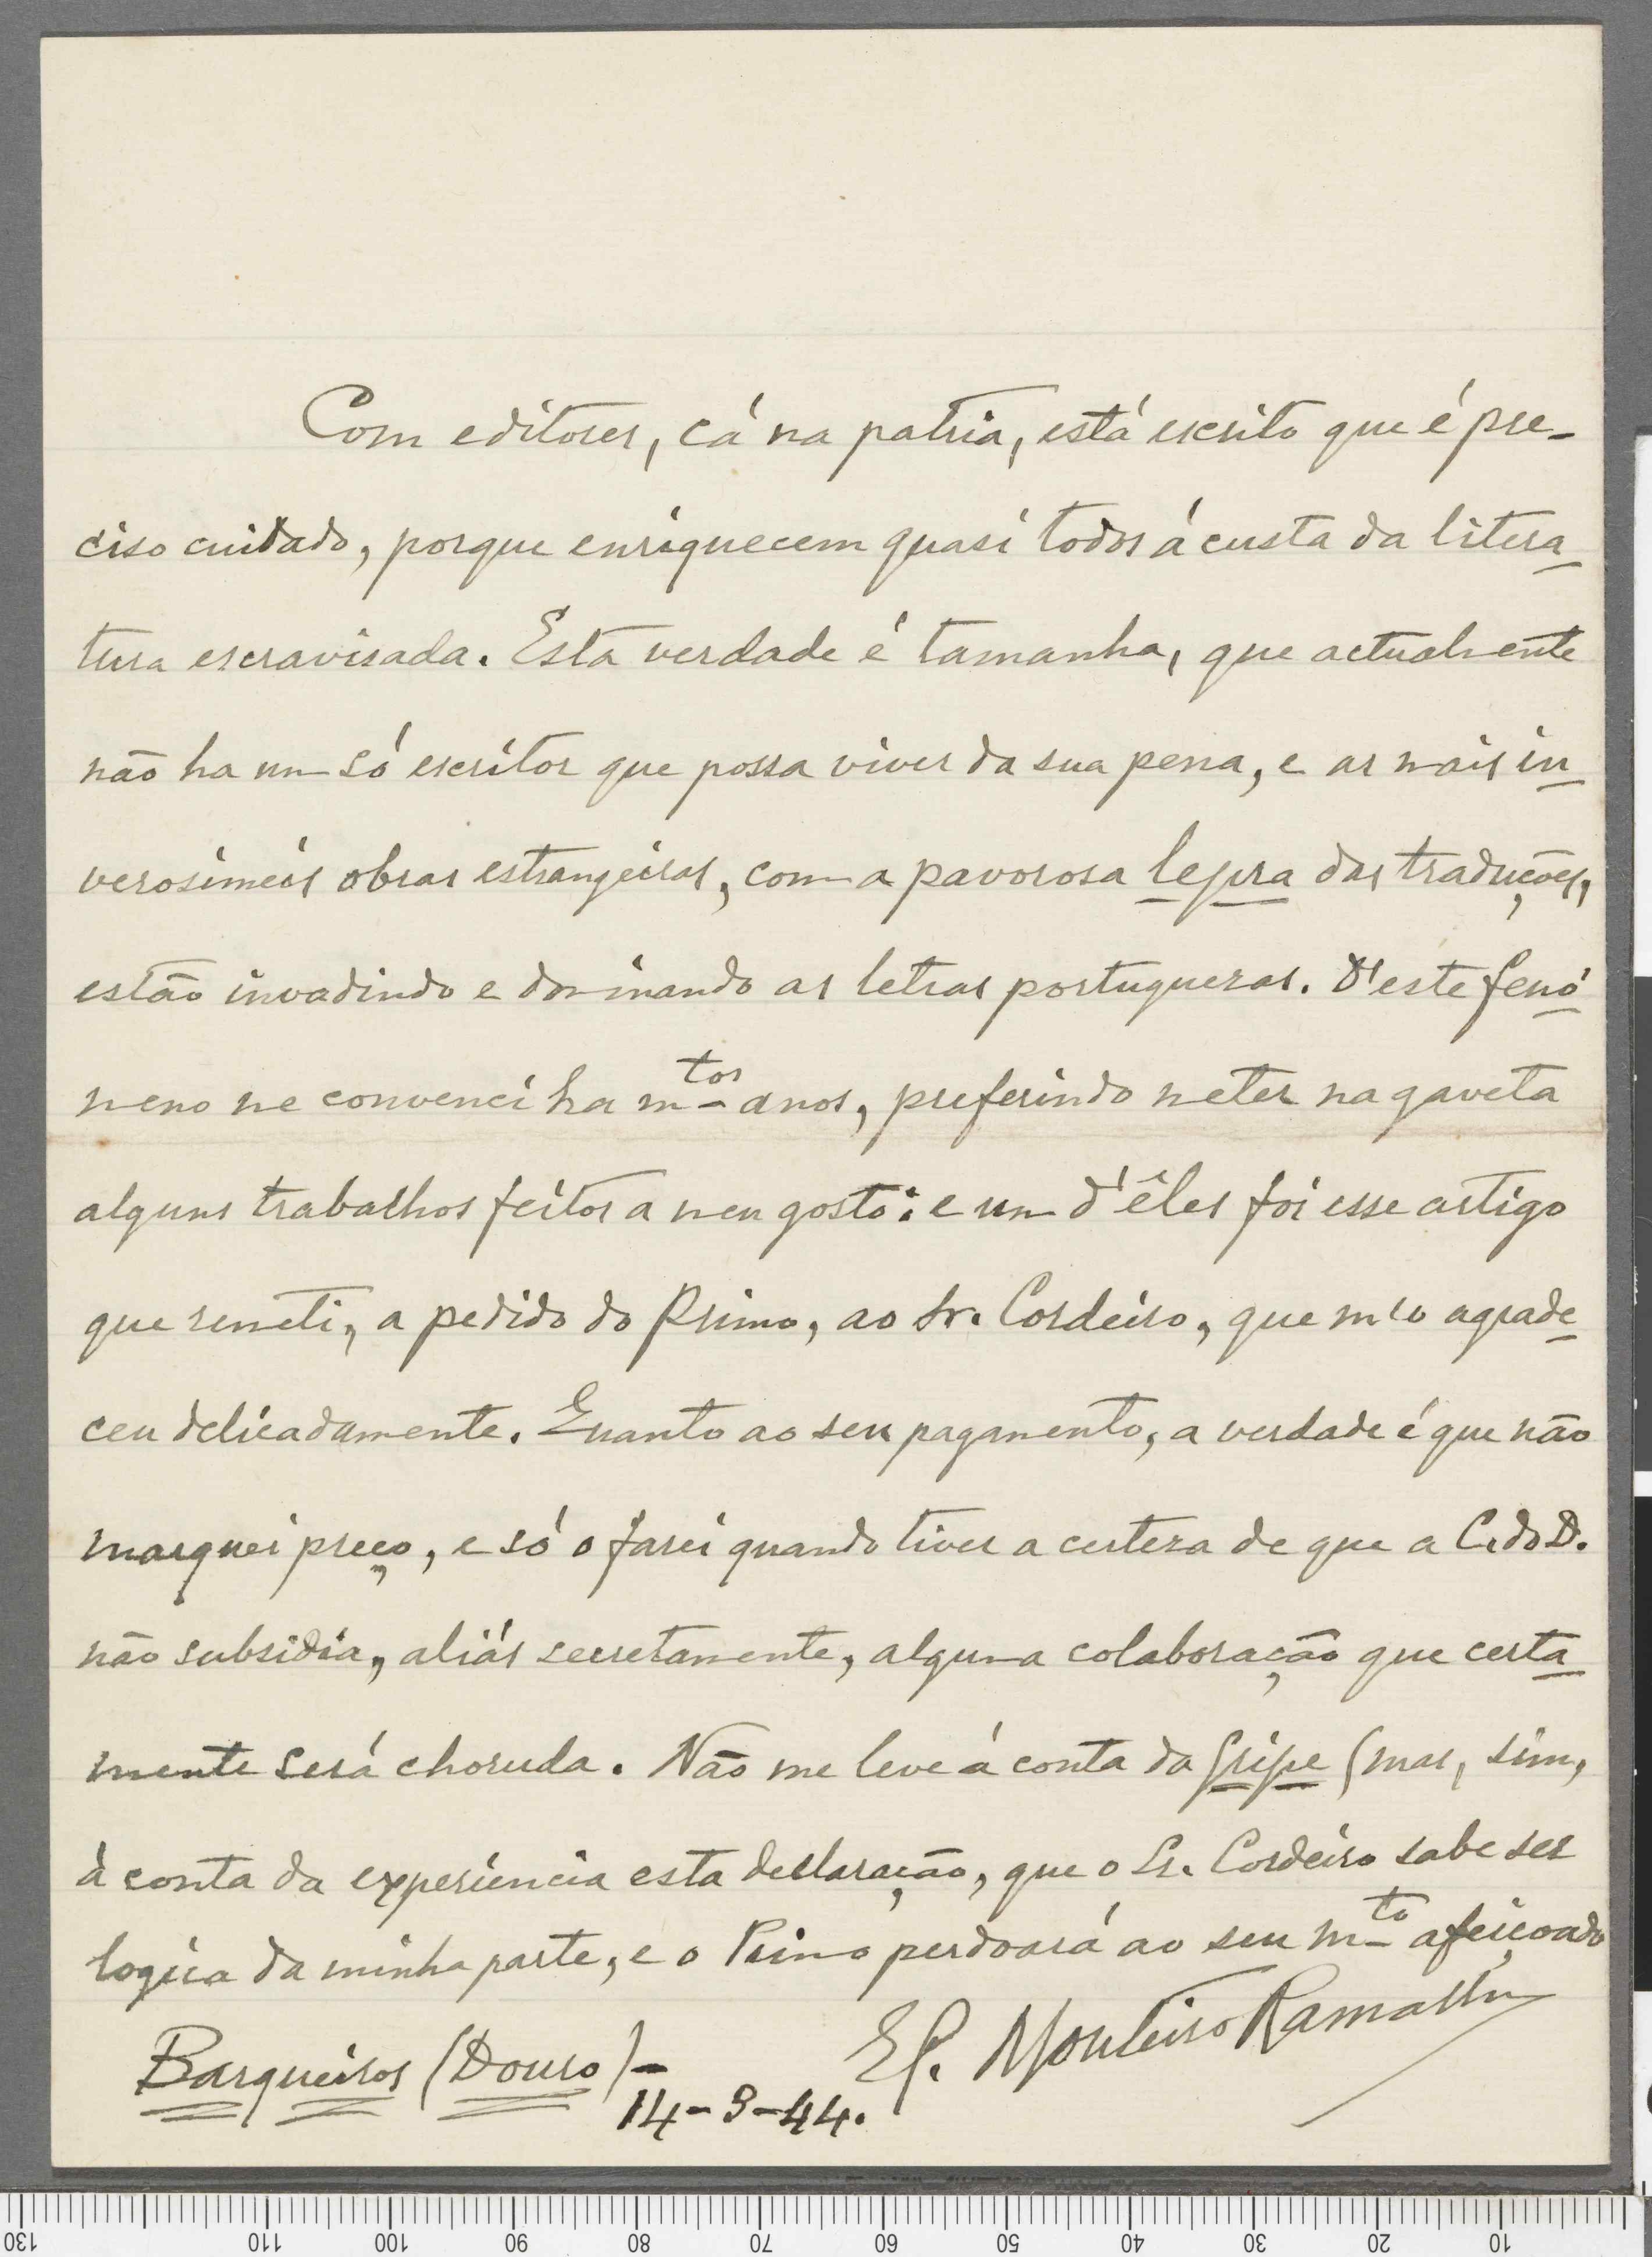 Com editores, cá na patria, está escrito que é pre-
ciso cuidado, porque enriquecem quasi todos á custa da litera-
tura escravisada. Esta verdade é tamanha, que actualmente
não ha um só escritor que possa viver da sua pena, e as mais in-
verosimeis obras estrangeiras, com a pavorosa lepra das traduções,
estão invadindo e dominando as letras portuguezas. D'este fenó-
meno me convenci ha mtos anos, preferindo meter na gaveta
alguns trabalhos feitos a meu gosto: e um d'êles foi esse artigo
que remeti, a pedido do Primo, ao Sr. Cordeiro, que m'o agrade-
ceu delicadamente. Quanto ao seu pagamento, a verdade é que não
marquei preço, e só o farei quando tiver a certeza de que a C. do D.
não subsidia, aliás secretamente, alguma colaboração que certa-
mente será choruda. Não me leve á conta da gripe (mas, sim,
á conta da experiencia esta declaração, que o Sr. Cordeiro sabe ser
logica da minha parte, e o Primo perdoará ao seu mto afeiçoado
Monteiro Ramalho
Barqueiros (Douro) -
14-3-44.
130 110 100 90 80 70 60 50 40 30 20 10